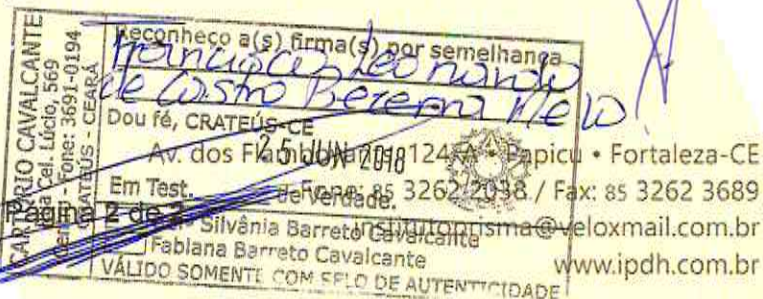 CARTÓRIO CAVALCANTE
Rua Cel. Lúcio, 569
Centro - Fone: 3691-0194
CRATEÚS - CEARÁ
Reconheço a(s) firma(s) por semelhança
Francisco Leonardo
de Castro Bezerra Melo
Dou fé, CRATEÚS-CE
25 JUN 2018
Em Test. de verdade.
Silvânia Barreto Cavalcante
Fabiana Barreto Cavalcante
VÁLIDO SOMENTE COM SELO DE AUTENTICIDADE
Av. dos 124 Papicu • Fortaleza-CE
Fone: 85 3262 / Fax: 85 3262 3689
institutoprisma@veloxmail.com.br
www.ipdh.com.br
Página 2 de